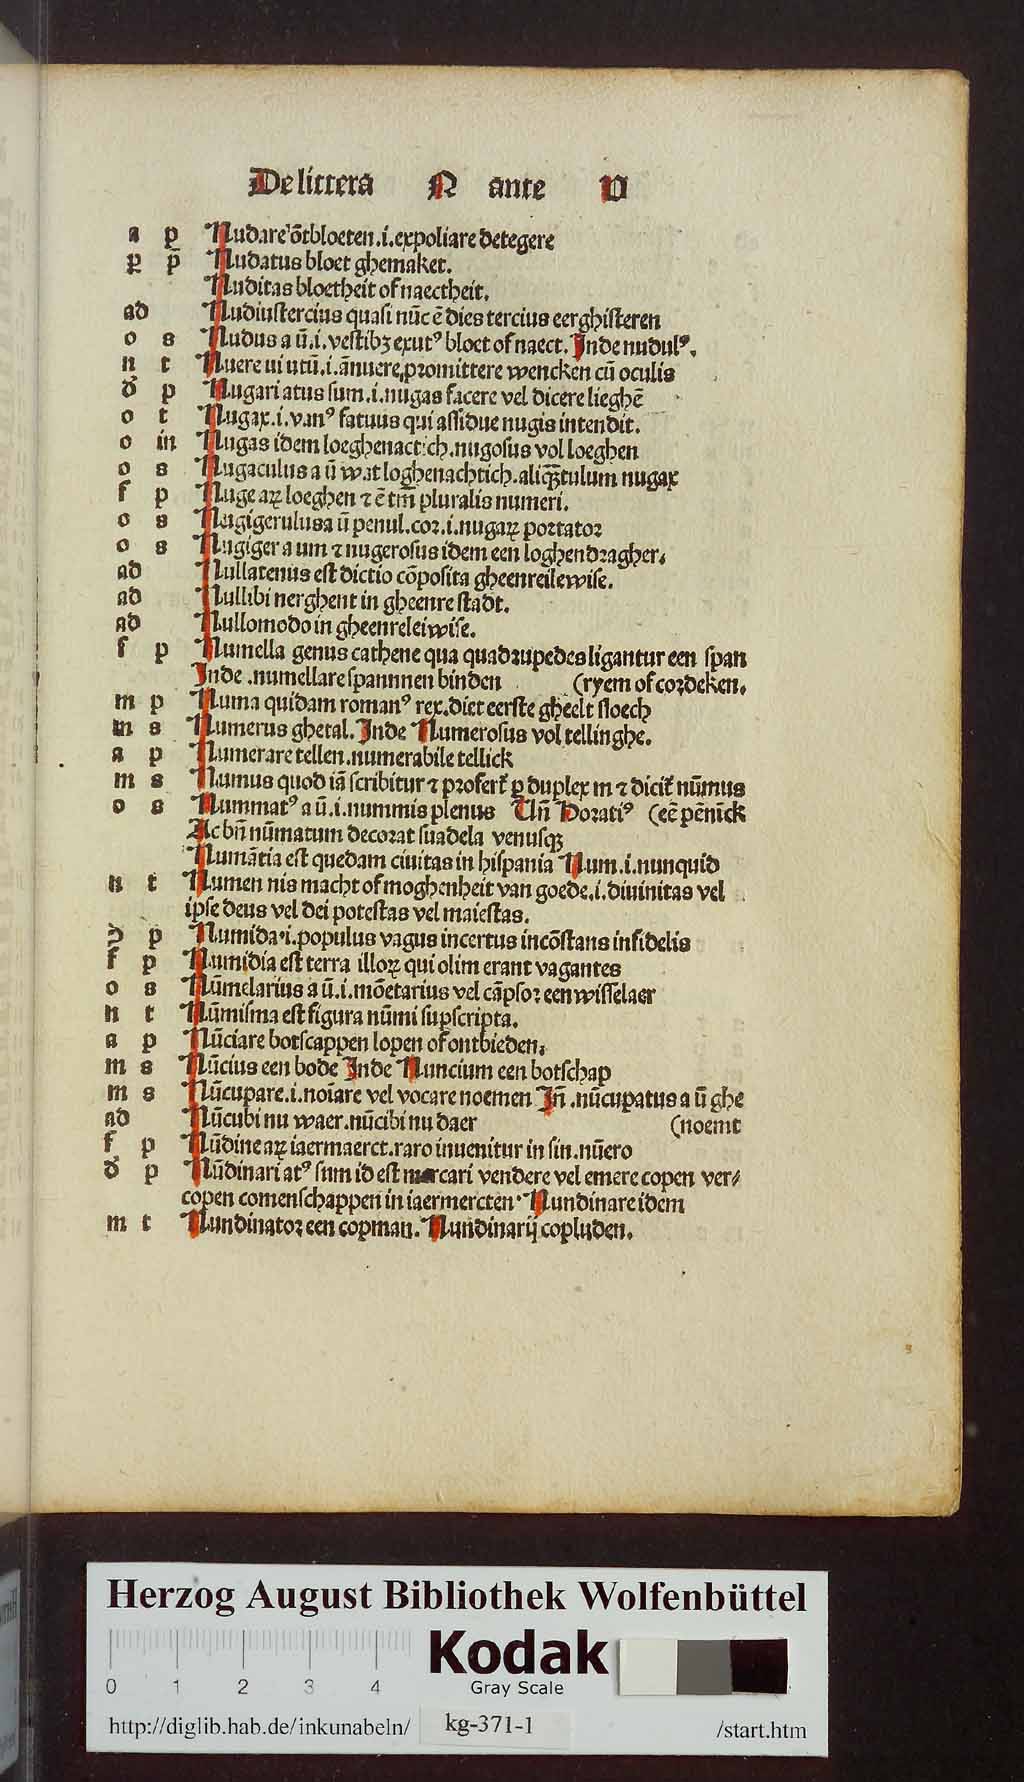 De littera N ante V
a p Nudare õtbloeten .i. expoliare detegere
ꝑ p̄ Nudatus bloet ghemaket.
Nuditas bloetheit of naectheit.
ad Nudiustercius quasi nũc ẽ dies tercius eerghisteren
o s Nudus a ũ .i. vestibꝫ exutꝰ bloet of naect. Inde nudulꝰ.
n t Nuere ui utũ .i. ãnuere, promittere wencken cũ oculis
d̕ p Nugari atus sum .i. nugas facere vel dicere lieghẽ
o t Nugax .i. vanꝰ fatuus qui assidue nugis intendit.
o in Nugas idem loeghenactich. nugosus vol loeghen
o s Nugaculus a ũ wat loghenachtich. aliqꝫtulum nugax
f p Nuge aꝝ loeghen ⁊ ẽ tm̃ pluralis numeri.
o s Nugigerulus a ũ penul. cor. i. nugaꝝ portator
o s Nugiger a um ⁊ nugerosus idem een loghendragher.
ad Nullatenus est dictio cõposita gheenreilewise.
ad Nullibi nerghent in gheenre stadt.
ad Nullomodo in gheenreleiwise.
f p Numella genus cathene qua quadrupedes ligantur een span
Inde .numellare spannnen binden (ryem of cordeken.
m p Numa quidam romanꝰ rex. diet eerste gheelt sloech
m s Numerus ghetal. Inde Numerosus vol tellinghe.
a p Numerare tellen. numerabile tellick
m s Numus quod iã scribitur ⁊ profert̃ ꝑ duplex m ⁊ dicit̃ nũmus
o s Nummatꝰ a ũ .i. nummis plenus Uñ Horatiꝰ (eẽ pẽnĩck
Ac bñ nũmatum decorat suadela venusqꝫ
Numãtia est quedam ciuitas in hispania Num .i. nunquid
n t Numen nis macht of moghenheit van goede .i. diuinitas vel
ipse deus vel dei potestas vel maiestas.
d̕ p Numida .i. populus vagus incertus incõstans infidelis
f p Numidia est terra illoꝝ qui olim erant vagantes
o s Nũmelarius a ũ .i. mõetarius vel cãpsor een wisselaer
n t Nũmisma est figura nũmi supscripta.
a p Nũciare botscappen lopen of ontbieden.
m s Nũcius een bode Inde Nuncium een botschap
m s Nũcupare .i. noĩare vel vocare noemen Iñ .nũcupatus a ũ ghe
ad Nũcubi nu waer. nũcibi nu daer (noemt
f p Nũdine aꝝ iaermaerct. raro inuenitur in sin. nũero
d̕ p Nũdinari atꝰ sum id est mercari vendere vel emere copen ver⸗
copen comenschappen in iaermercten. Nundinare idem
m t Nundinator een copman. Nundinarij copluden.
Herzog August Bibliothek Wolfenbüttel
0 1 2 3 4
Kodak
Gray Scale
http://diglib.hab.de/inkunabeln/ kg-371-1 /start.htm